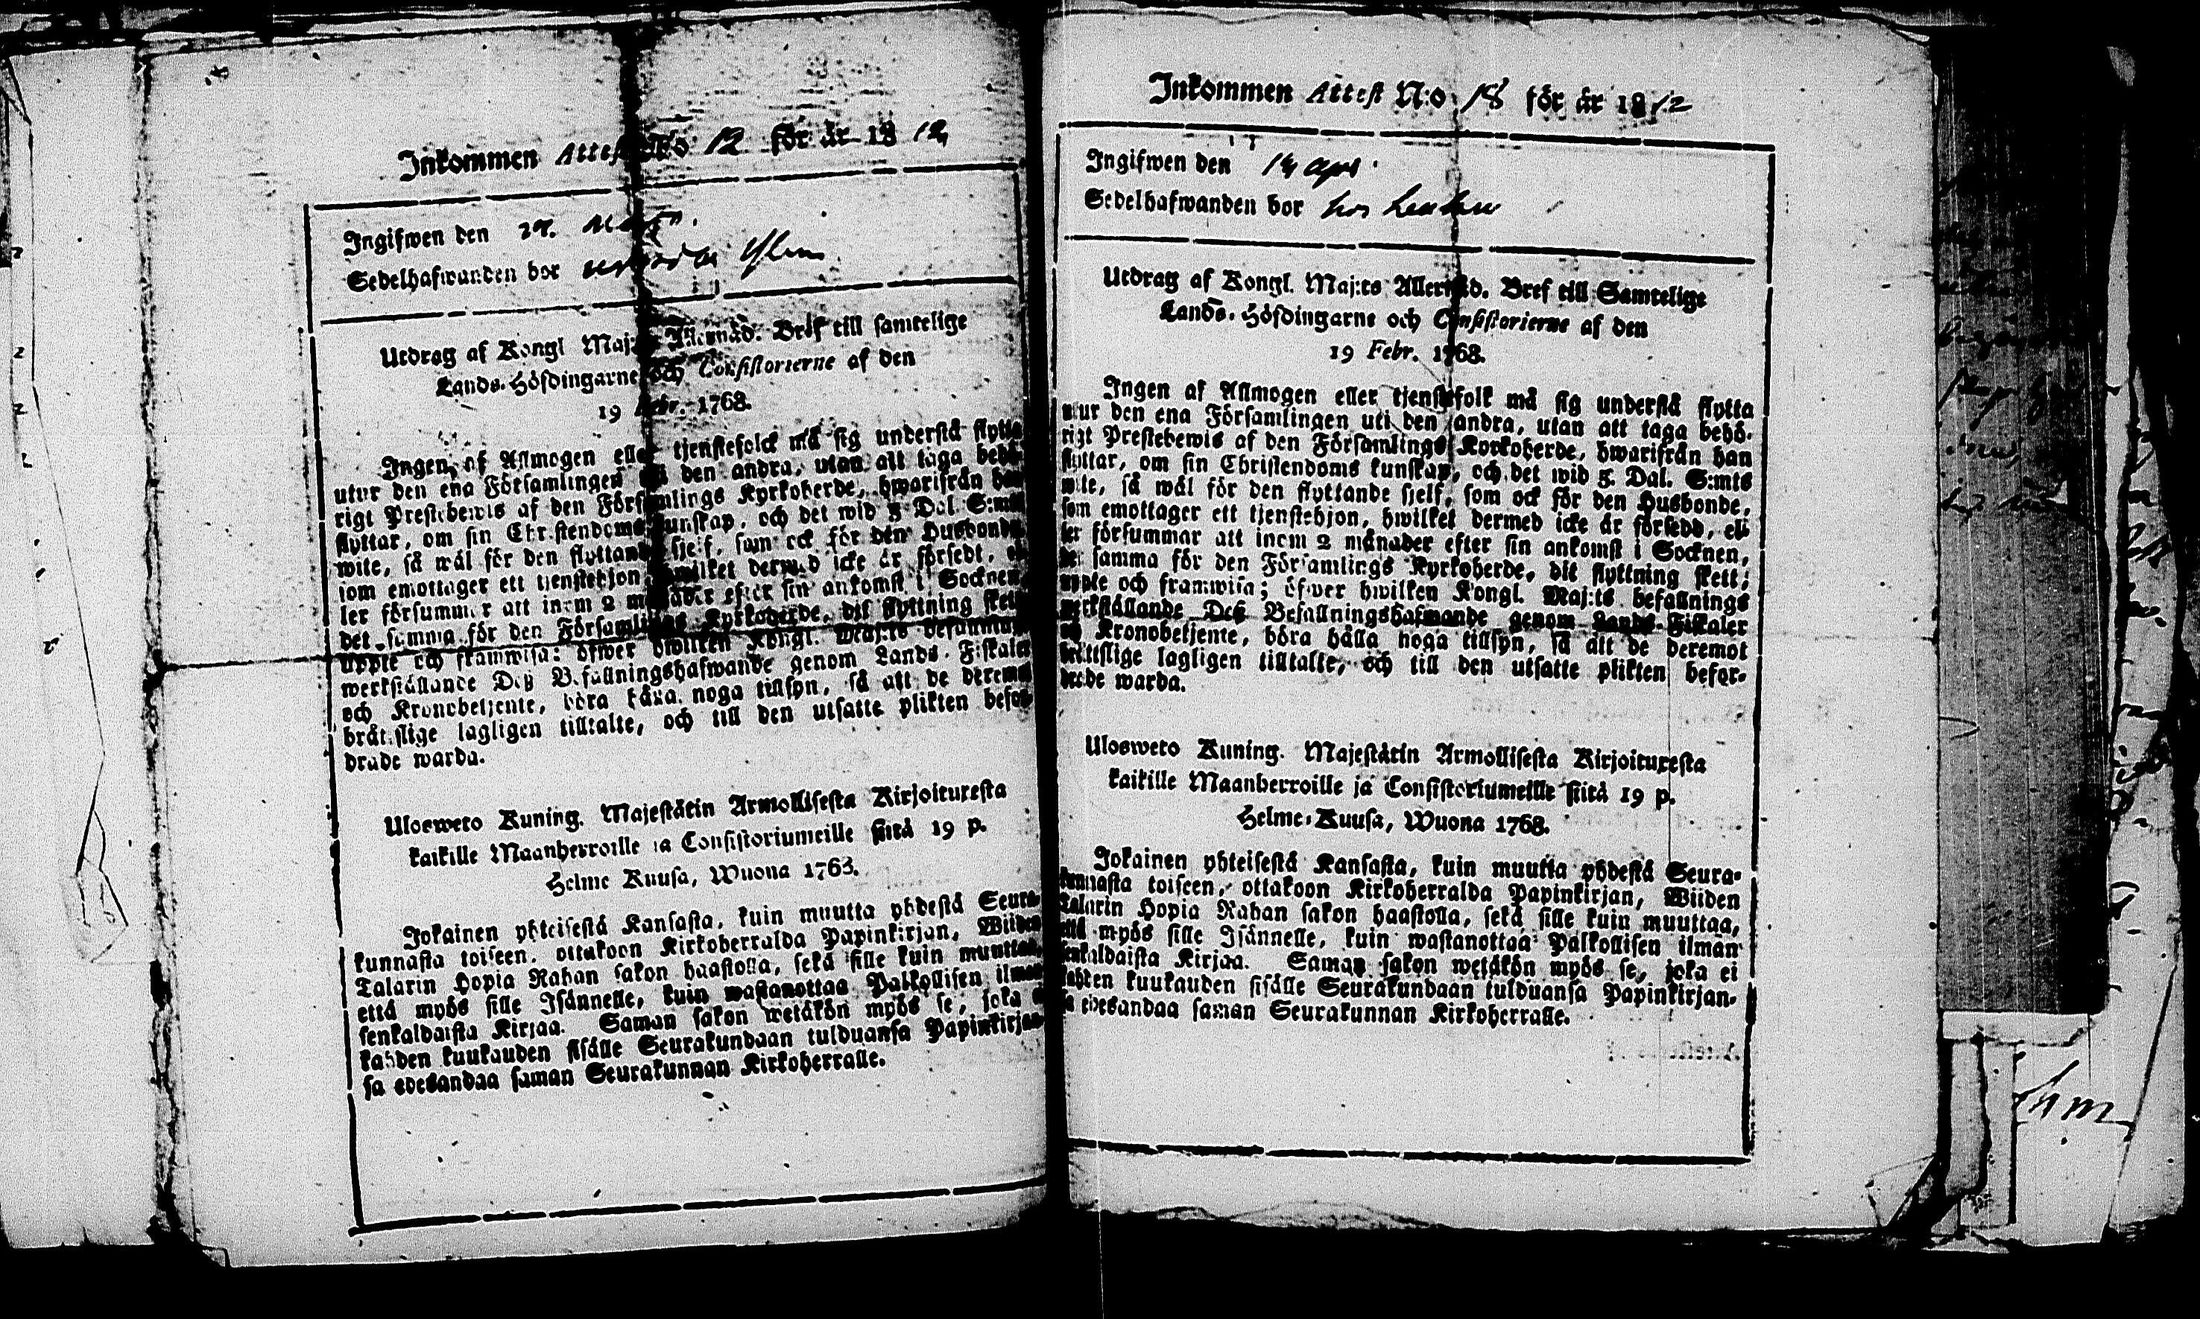 Inkommen Attest N:o 12 för år 1812
Ingifwen den 29.
Sedelhafwanden bor
Utdrag af Kongl Maj:ts Allernåd. Bref till samtelige
Lands-Höfdingarne och Consistorierne af den
19 Febr. 1768.
Ingen af Allmogen eller tjenstefolck må sig understå flytta
utur den ena Församlingen uti den andra, utan att taga behö-
rigt Prestebewis af den Församlings Kyrkoherde, hwarifrån han
flyttar, om sin Christendoms kunskap, och det wid 5 Dal. S:mts
wite, så wäl för den flyttande sjelf, som ock för den Husbonde,
som emottager ett tjenstehjon, hwilket dermed icke är försedt, el-
ler försummar att inom 2 månader efter sin ankomst i Socknen,
det samma för den Församlings Kyrkoherde, dit flyttning skett,
uppte och framwisa: öfwer hwilken Kongl. Maj:ts befallnings
werkställande Deß Befallningshafwande genom Lands-Fiskaler
och Kronobetjente, böra hålla noga tillsyn, så att de deremot
bråttslige lagligen tilltalte, och till den utsatte plikten befor-
drade warda.
Ulosweto Kuning. Majestätin Armollisesta Kirjoituxesta
kaikille Maanherroille ja Consistoriumeille siitä 19 p.
Helme Kuusa, Wuona 1768.
Jokainen yhteisestä Kansasta, kuin muutta yhdestä Seura-
kunnasta toiseen, ottakoon Kirkoherralda Papinkirjan, Wiiden
Talarin Hopia Rahan sakon haastolla, sekä sille kuin muuttaa,
että myös sille Isännelle, kuin wastanottaa Palkollisen ilman
senkaldaista Kirjaa. Saman sakon wetäkön myös se, joka ei
kahden kuukauden sisälle Seurakundaan tulduansa Papinkirjan-
sa edesandaa saman Seurakunnan Kirkoherralle.
Inkommen Attest N:o 18 för år 1812
Ingifwen den 14 apr.
Sedelhafwanden bor hos
Utdrag af Kongl. Maj:ts Allernåd. Bref till Samtelige
Lands-Höfdingarne och Consistorierne af den
19 Febr. 1768.
Ingen af Allmogen eller tjenstefolk må sig understå flytta
utur den ena Församlingen uti den andra, utan att taga behö-
rigt Prestebewis af den Församlings Kyrkoherde, hwarifrån han
flyttar, om sin Christendoms kunskap, och det wid 5. Dal. S:mts
wite, så wäl för den flyttande sjelf, som ock för den Husbonde,
som emottager ett tjenstehjon, hwilket dermed icke är försedd, el-
ler försummar att inom 2 månader efter sin ankomst i Socknen,
det samma för den Församlings Kyrkoherde, dit flyttning skett;
uppte och framwisa; öfwer hwilken Kongl. Maj:ts befallnings
werkställande Deß Befallningshafwande genom Lands-Fiskaler
och Kronobetjente, böra hålla noga tillsyn, så att de deremot
bråttslige lagligen tilltalte, och till den utsatte plikten befor-
drade warda.
Ulosweto Kuning. Majestätin Armollisesta Kirjoituxesta
kaikille Maanherroille ja Consistoriumeille siitä 19 p.
Helme-Kuusa, Wuona 1768.
Jokainen yhteisestä Kansasta, kuin muutta yhdestä Seura-
kunnasta toiseen, ottakoon Kirkoherralda Papinkirjan, Wiiden
Talarin Hopia Rahan sakon haastolla, sekä sille kuin muuttaa,
että myös sille Isännelle, kuin wastanottaa Palkollisen ilman
senkaldaista Kirjaa. Saman sakon wetäkön myös se, joka ei
kahden kuukauden sisälle Seurakundaan tulduansa Papinkirjan-
sa edesandaa saman Seurakunnan Kirkoherralle.